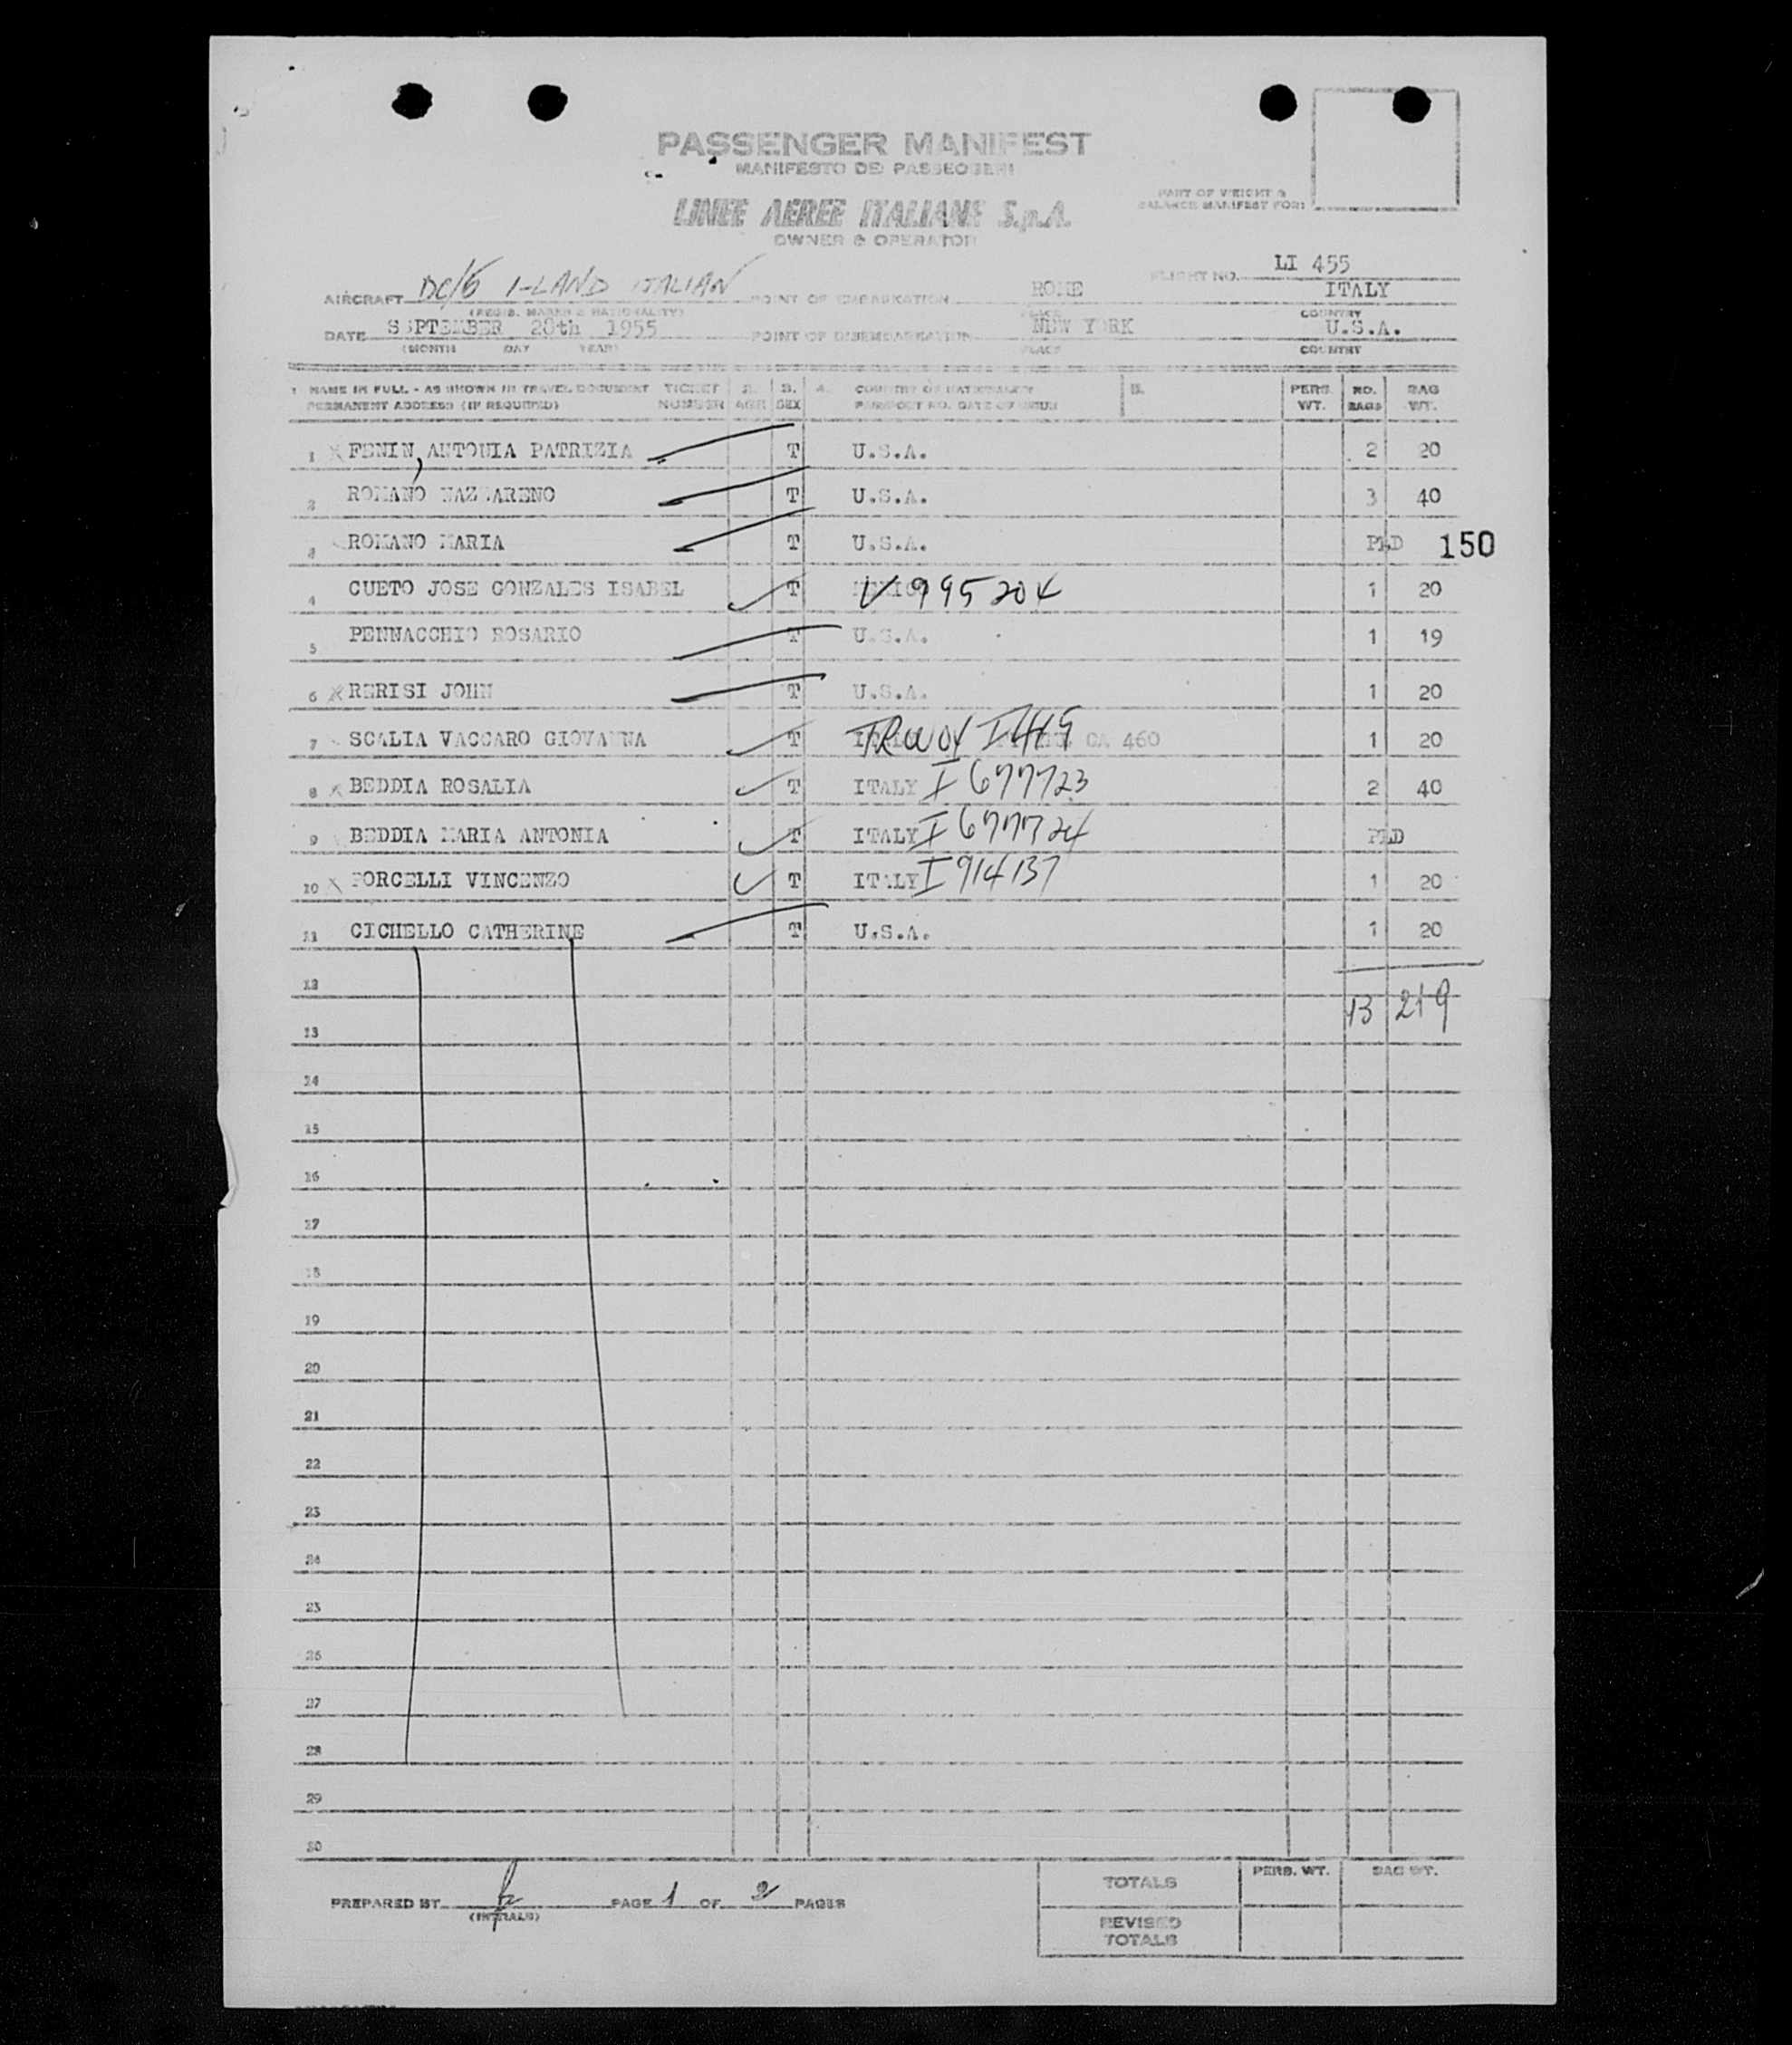 PASSENGER MANIFEST
MANIFESTO DEI PASSEGGERI
PART OF WEIGHT &
BALANCE MANIFEST FOR:
LINEE AEREE ITALIANE S.p.A.
OWNER & OPERATOR
FLIGHT NO. LI 455
AIRCRAFT DC/6 I-LAND ITALIAN POINT OF EMBARKATION ROME ITALY
(REGIS. MARKS & NATIONALITY) PLACE COUNTRY
DATE SEPTEMBER 28th 1955 POINT OF DISEMBARKATION NEW YORK U.S.A.
(MONTH DAY YEAR) PLACE COUNTRY
1 NAME IN FULL - AS SHOWN IN TRAVEL DOCUMENT TICKET 2. 3. 4. COUNTRY OF NATIONALITY 5. PERS. NO. BAG
PERMANENT ADDRESS (IF REQUIRED) NUMBER AGE SEX PASSPORT NO. DATE OF WT. BAGS WT.
1 FENIN, ANTONIA PATRIZIA T U.S.A. 2 20
2 ROMANO NAZZARENO T U.S.A. 3 40
3 ROMANO MARIA T U.S.A. PLD 150
4 CUETO JOSE GONZALES ISABEL T V 995204 1 20
5 PENNACCHIO ROSARIO T U.S.A. 1 19
6 RERISI JOHN T U.S.A. 1 20
7 SCALIA VACCARO GIOVANNA T CA 460 1 20
8 BEDDIA ROSALIA T ITALY I 677723 2 40
9 BEDDIA MARIA ANTONIA T ITALY I 677724 PLD
10 PORCELLI VINCENZO T ITALY I 914137 1 20
11 CICHELLO CATHERINE T U.S.A. 1 20
12
13 219
13
14
15
16
17
18
19
20
21
22
23
24
25
26
27
28
29
30
TOTALS PERS. WT. BAG WT.
PREPARED BY PAGE 1 OF 2 PAGES
(INITIALS)
REVISED
TOTALS